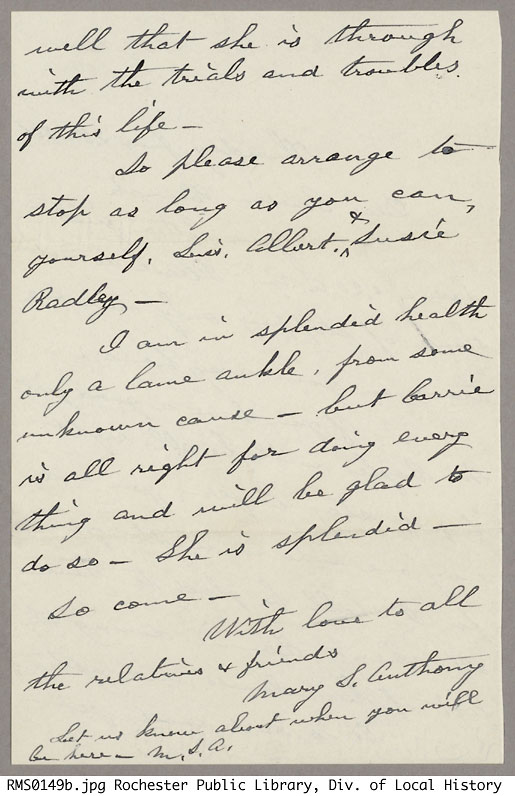 well that she is through
with the trials and troubles
of this life —
So please arrange to
stop as long as you can,
yourself, Luis. Albert, & Susie
Radley, —
I am in splendid health
only a lame ankle, from some
unknown cause — but Carrie
is all right for doing every
thing and will be glad to
do so — She is splendid —
So come —
With love to all
the relatives & friends
Mary S. Anthony
Let us know about when you will
be here — M. S. A.
RMS0149b.jpg Rochester Public Library, Div. of Local History